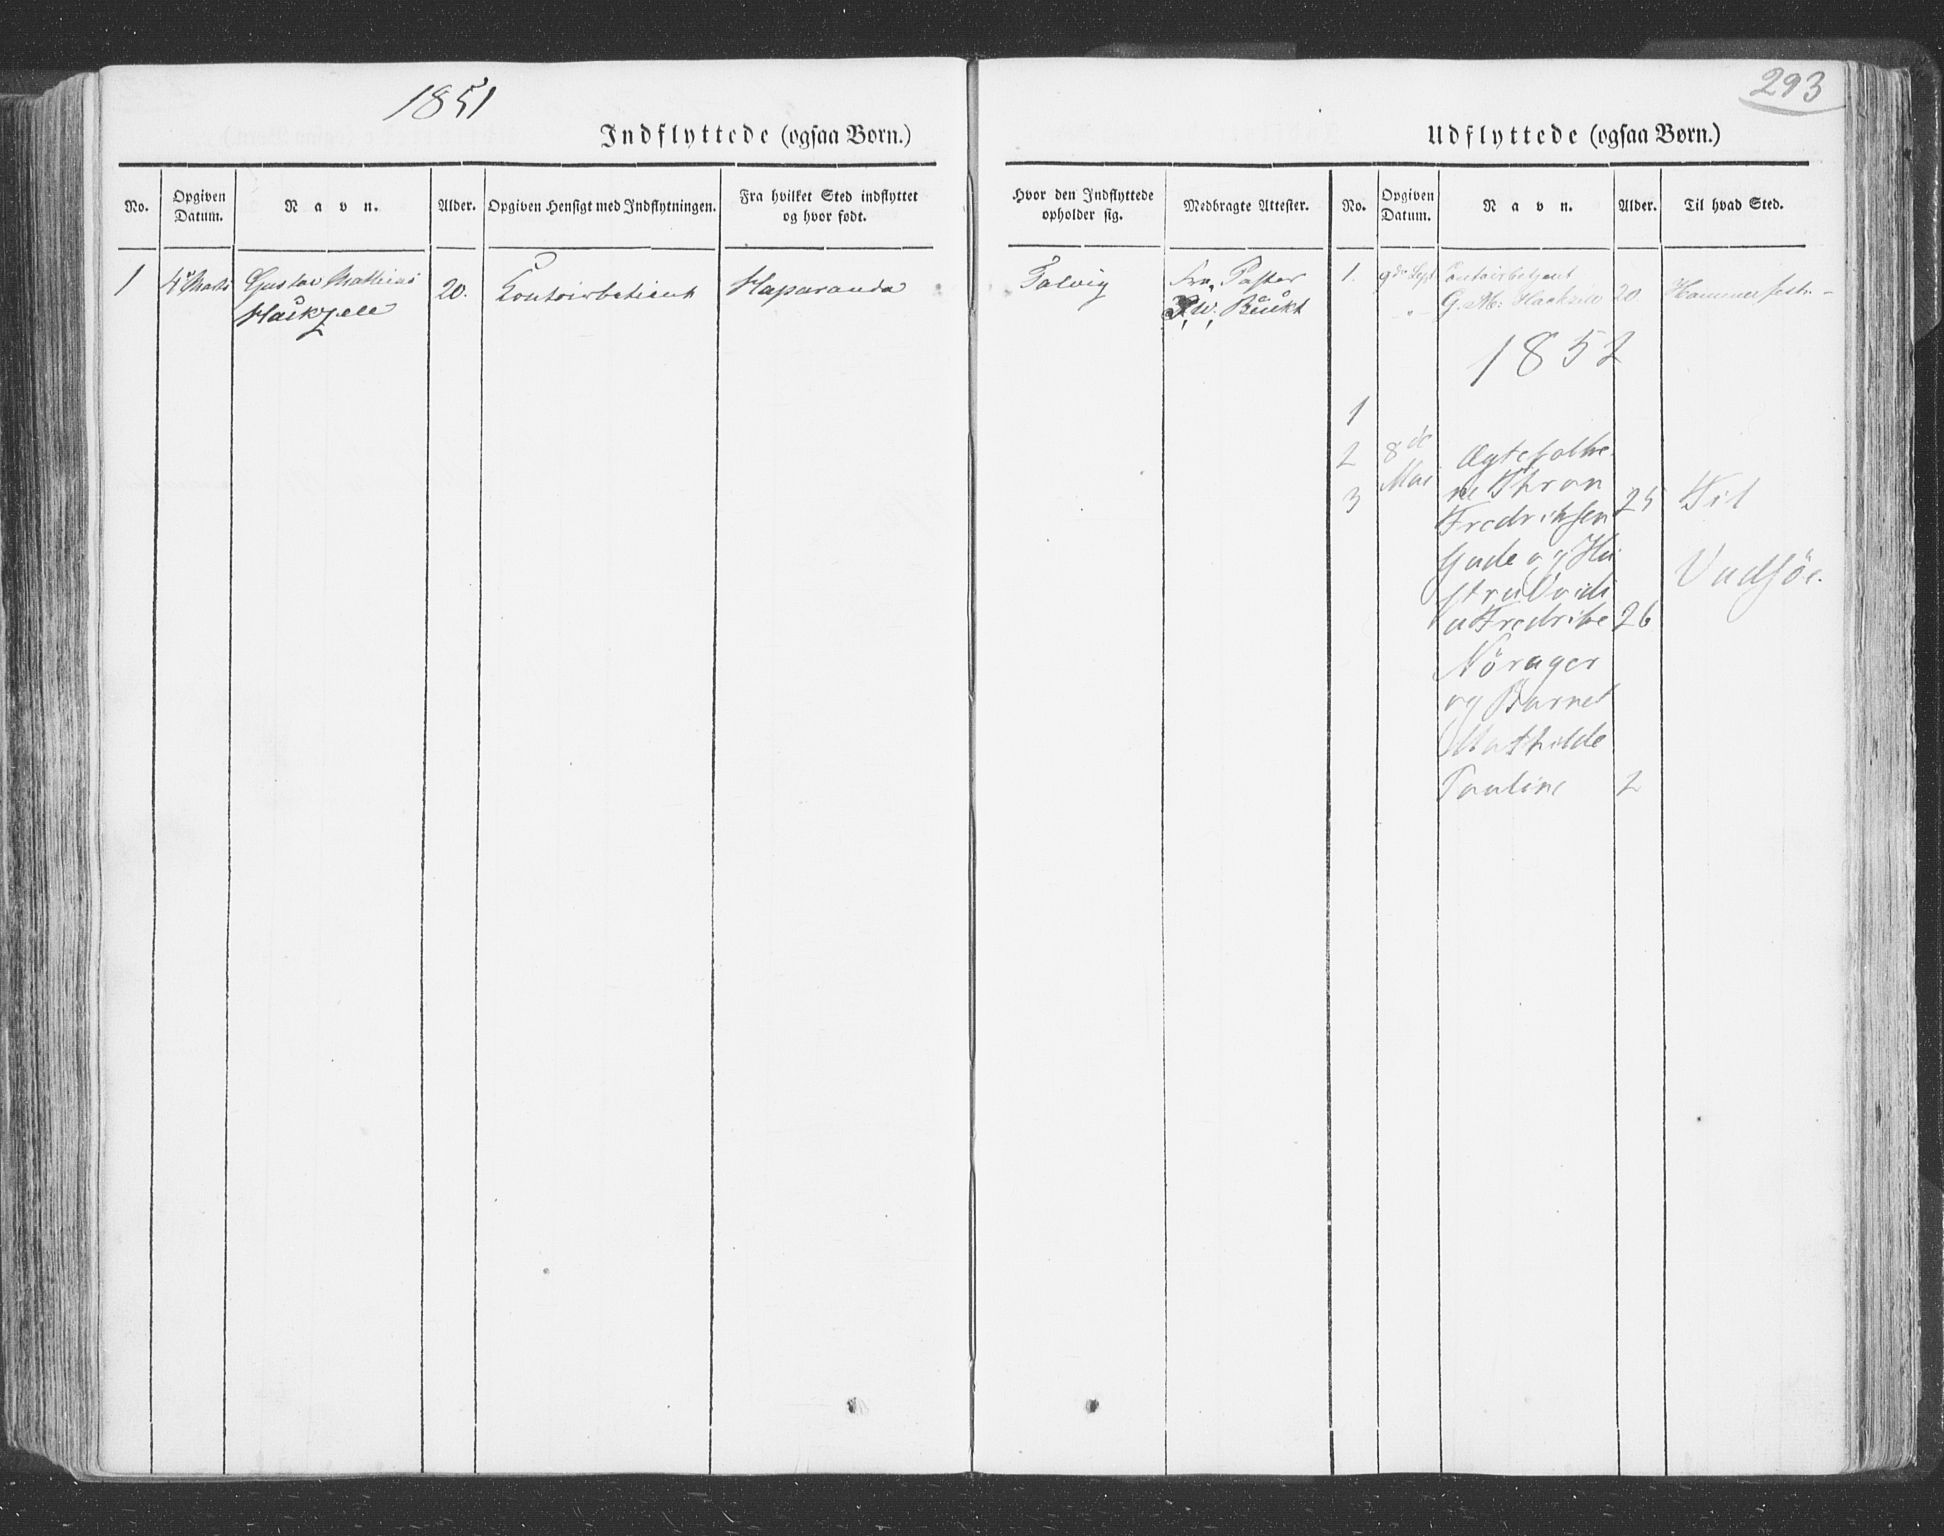 1851
Indflyttede (ogsaa Børn.)
No.
Opgiven
Datum.
Navn.
Alder.
Opgiven Hensigt med Indflytningen.
Fra hvilket Sted indflyttet
og hvor født.
1
Gustav Mathias
20.
Contoirbetient
Haparanda
293
Udflyttede (ogsaa Børn.)
Hvor den Indflyttede
opholder sig.
Medbragte Attester.
No.
Opgiven
Datum.
Navn.
Alder.
Til hvad Sted.
Talvig
Fra Pastor
1.
9de Sept
Contoirbetjent
G. M. 20
Hammerfest
1852
1
2
3
8de
Mai
Ægtefolke
ne Thron
Fredriksen 25
Gade og Hu
stru
a Fredrikke 26
Nörager
og Barnet
Mathilde
Pauline 2
Til
Vadsöe.